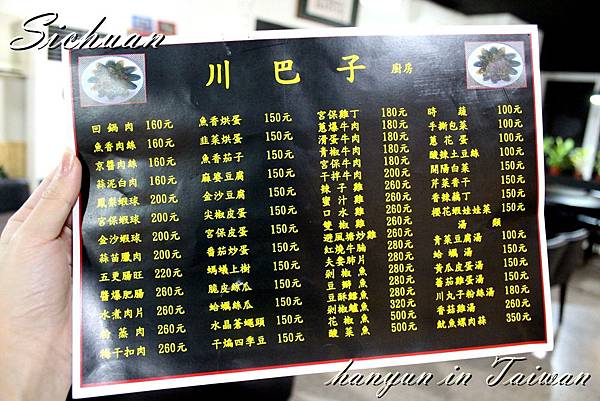 Sichuan
川巴子 廚房
回鍋肉 160元
魚香肉絲 160元
京醬肉絲 160元
蒜泥白肉 160元
鳳梨蝦球 200元
宮保蝦球 200元
金沙蝦球 200元
蒜苗臘肉 200元
五更腸旺 220元
醬爆肥腸 260元
水煮肉片 260元
粉蒸肉 260元
梅干扣肉 260元
魚香烘蛋 150元
韭菜烘蛋 150元
魚香茄子 150元
麻婆豆腐 150元
金沙豆腐 150元
尖椒皮蛋 150元
宮保皮蛋 150元
番茄炒蛋 150元
螞蟻上樹 150元
脆皮絲瓜 150元
蛤蠣絲瓜 150元
水晶蒼蠅頭 150元
干煸四季豆 150元
宮保雞丁 180元
蔥爆牛肉 180元
滑蛋牛肉 180元
青椒牛肉 180元
宮保牛肉 180元
干拌牛肉 200元
辣子雞 260元
蜜汁雞 260元
口水雞 260元
雙椒雞 260元
避風塘炒雞 260元
紅燒牛腩 280元
夫妻肺片 260元
剁椒魚 280元
豆瓣魚 280元
豆酥鱈魚 280元
剁椒鱸魚 320元
花椒魚 500元
酸菜魚 500元
時蔬 100元
手撕包菜 100元
蔥花蛋 100元
酸辣土豆絲 100元
開陽白菜 150元
芹菜香干 150元
香辣藕丁 150元
櫻花蝦娃娃菜 150元
湯類
青菜豆腐湯 100元
蛤蠣湯 150元
黃瓜皮蛋湯 150元
蕃茄雞蛋湯 150元
川丸子粉絲湯 180元
香菇雞湯 260元
魷魚螺肉蒜 350元
hanyun in Taiwan